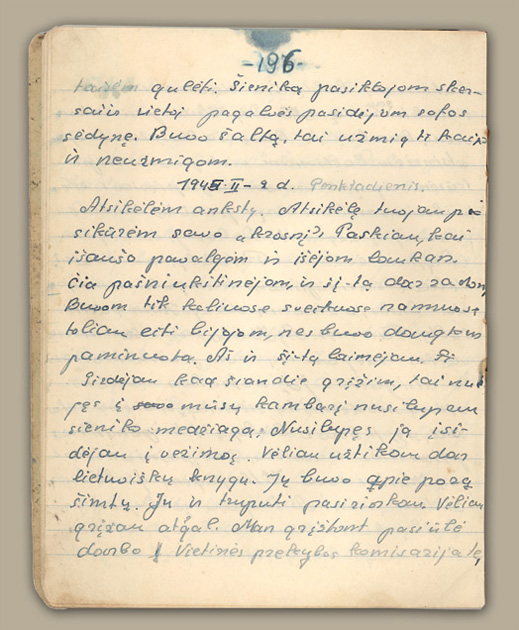 -196-
taisėm gulėti. Šieniką pasiklojom sker-
sai ir vietoj pagalvės pasidėjom sofos
sėdynę. Buvo šalta, tai užmigti kaip
ir neužmigom.
II - 2 d. Penktadienis.
Atsikėlėm anksty. Atsikėlę tuojau pa
sikūrėm savo „krosnį". Paskiau, kai
išaušo pavalgėm ir išėjom laukan.
Čia pašniukštinėjom ir šį-tą dar radom,
Buvom tik keliuose sveikuose namuose
toliau eiti bijojom, nes buvo daug kem
paminuota. Aš ir šį-tą laimėjau.
Girdėjau kad šiandie grįžim, tai nu
ęs į savo mūsų kambarį nusilupau
sieniko medžiagą. Nusilupęs ją įsi-
dėjau į vežimą. Vėliau užtikom dar
lietuviškų knygų. Jų buvo apie porą
šimtų. Jų ir truputi pasirinkau. Vėliau
grįžau atgal. Man grįžtant pasiūlė
darbo Vietinės prekybos komisarijate,